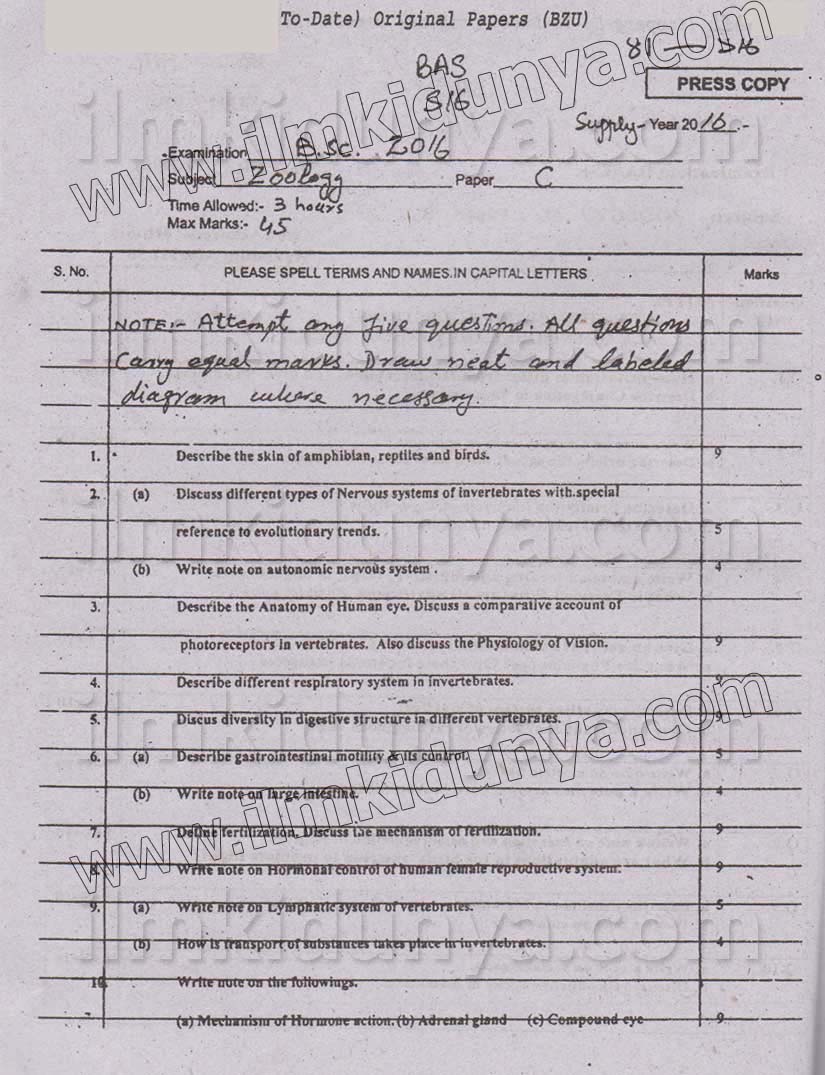 To-Date) Original Papers (BZU)
81 — S16
BAS
S16
PRESS COPY
Supply - Year 2016.-
Examination B.Sc. 2016
Subject Zoology Paper C
Time Allowed:- 3 hours
Max Marks:- 45
S. No. PLEASE SPELL TERMS AND NAMES.IN CAPITAL LETTERS Marks
NOTE:- Attempt any five questions. All questions
Carry equal marks. Draw neat and labeled
diagram where necessary.
1. Describe the skin of amphibian, reptiles and birds. 9
2. (a) Discuss different types of Nervous systems of invertebrates with special
reference to evolutionary trends. 5
(b) Write note on autonomic nervous system . 4
3. Describe the Anatomy of Human eye. Discuss a comparative account of
photoreceptors in vertebrates. Also discuss the Physiology of Vision. 9
4. Describe different respiratory system in invertebrates. 9
5. Discus diversity in digestive structure in different vertebrates. 9
6. (a) Describe gastrointestinal motility & its control. 5
(b) Write note on large intestine. 4
7. Define fertilization. Discuss the mechanism of fertilization. 9
8. Write note on Hormonal control of human female reproductive system. 9
9. (a) Write note on Lymphatic system of vertebrates. 5
(b) How is transport of substances takes place in invertebrates. 4
10. Write note on the followings.
(a) Mechanism of Hormone action. (b) Adrenal gland (c) Compound eye 9
www.ilmkidunya.com
www.ilmkidunya.com
ilmkidunya.com
ilmkidunya.com
ilmkidunya.com
ilmkidunya.com
ilmkidunya.com